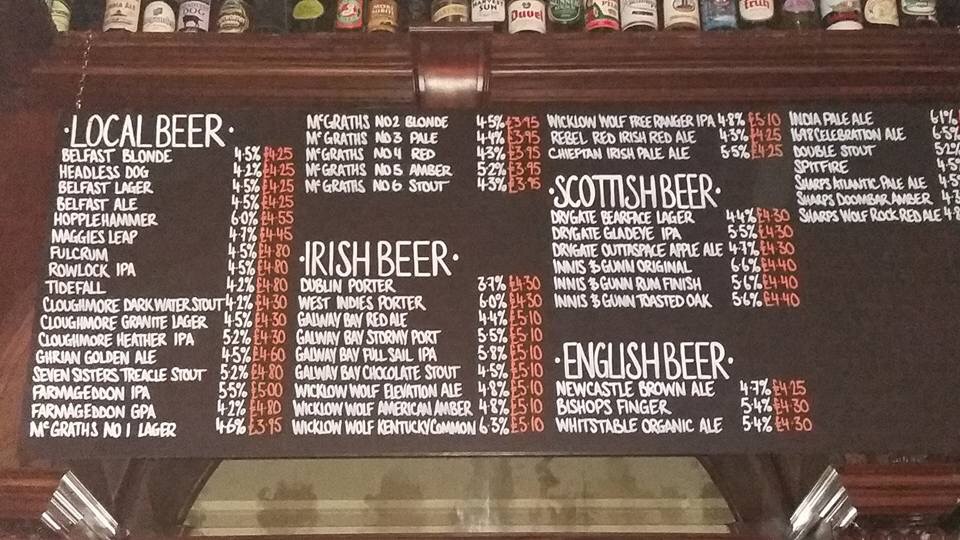 ·LOCAL BEER·
BELFAST BLONDE 4·5% £4·25
HEADLESS DOG 4·2% £4·25
BELFAST LAGER 4·5% £4·25
BELFAST ALE 4·5% £4·25
HOPPLEHAMMER 6·0% £4·55
MAGGIES LEAP 4·7% £4·45
FULCRUM 4·5% £4·80
ROWLOCK IPA 4·5% £4·80
TIDEFALL 4·2% £4·80
CLOUGHMORE DARK WATER STOUT 4·2% £4·30
CLOUGHMORE GRANITE LAGER 4·5% £4·30
CLOUGHMORE HEATHER IPA 5·2% £4·30
GHRIAN GOLDEN ALE 4·5% £4·60
SEVEN SISTERS TREACLE STOUT 5·2% £4·80
FARMAGEDDON IPA 5·5% £5·00
FARMAGEDDON GPA 4·2% £4·80
McGRATHS NO 1 LAGER 4·6% £3·95
McGRATHS NO 2 BLONDE 4·5% £3·95
McGRATHS NO 3 PALE 4·4% £3·95
McGRATHS NO 4 RED 4·3% £3·95
McGRATHS NO 5 AMBER 5·2% £3·95
McGRATHS NO 6 STOUT 4·3% £3·95
·IRISH BEER·
DUBLIN PORTER 3·7% £4·30
WEST INDIES PORTER 6·0% £4·30
GALWAY BAY RED ALE 4·4% £5·10
GALWAY BAY STORMY PORT 5·5% £5·10
GALWAY BAY FULL SAIL IPA 5·8% £5·10
GALWAY BAY CHOCOLATE STOUT 4·5% £5·10
WICKLOW WOLF ELEVATION ALE 4·8% £5·10
WICKLOW WOLF AMERICAN AMBER 4·8% £5·10
WICKLOW WOLF KENTUCKY COMMON 6·3% £5·10
WICKLOW WOLF FREE RANGER IPA 4·8% £5·10
REBEL RED IRISH RED ALE 4·3% £4·25
CHIEFTAN IRISH PALE ALE 5·5% £4·25
·SCOTTISH BEER·
DRYGATE BEARFACE LAGER 4·4% £4·30
DRYGATE GLADEYE IPA 5·5% £4·30
DRYGATE OUTTASPACE APPLE ALE 4·7% £4·30
INNIS & GUNN ORIGINAL 6·6% £4·40
INNIS & GUNN RUM FINISH 5·6% £4·40
INNIS & GUNN TOASTED OAK 5·6% £4·40
·ENGLISH BEER·
NEWCASTLE BROWN ALE 4·7% £4·25
BISHOPS FINGER 5·4% £4·30
WHITSTABLE ORGANIC ALE 5·4% £4·30
INDIA PALE ALE 6·1%
1698 CELEBRATION ALE 6·5%
DOUBLE STOUT 5·2%
SPITFIRE
SHARPS ATLANTIC PALE ALE
SHARPS DOOMBAR AMBER
SHARPS WOLF ROCK RED ALE
Duvel